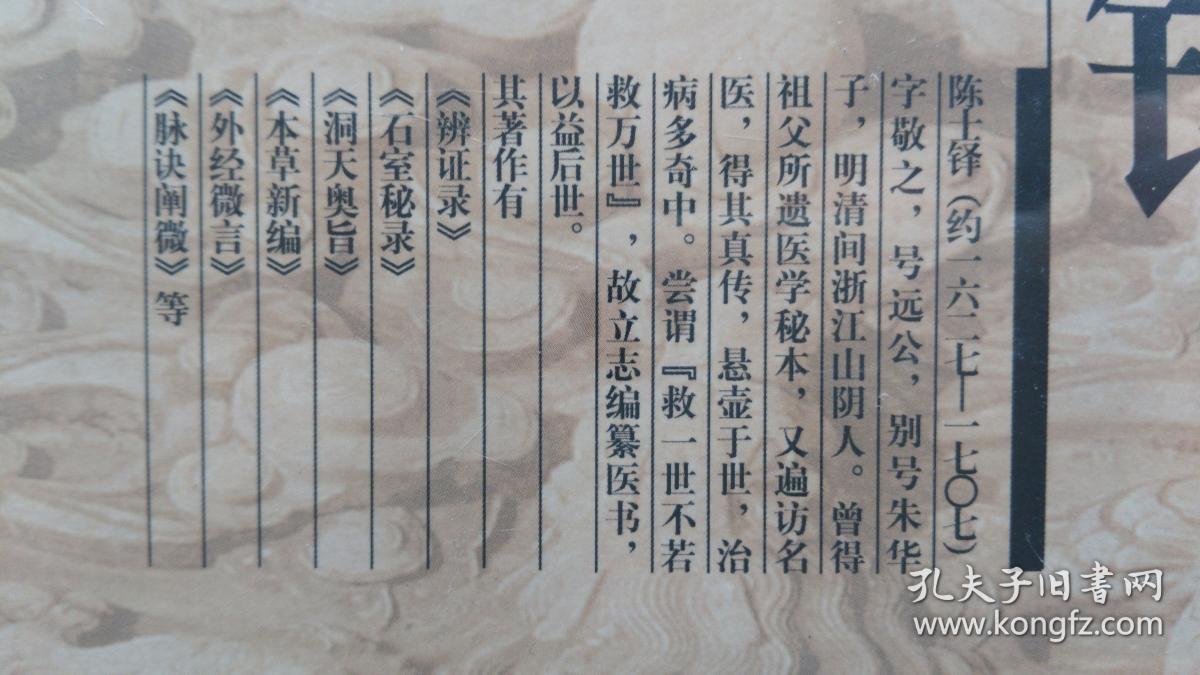 陈士铎（约一六二七—一七〇七）
字敬之，号远公，别号朱华
子，明清间浙江山阴人。曾得
祖父所遗医学秘本，又遍访名
医，得其真传，悬壶于世，治
病多奇中。尝谓『救一世不若
救万世』，故立志编纂医书，
以益后世。
其著作有
《辨证录》
《石室秘录》
《洞天奥旨》
《本草新编》
《外经微言》
《脉诀阐微》等
孔夫子旧书网
www.kongfz.com